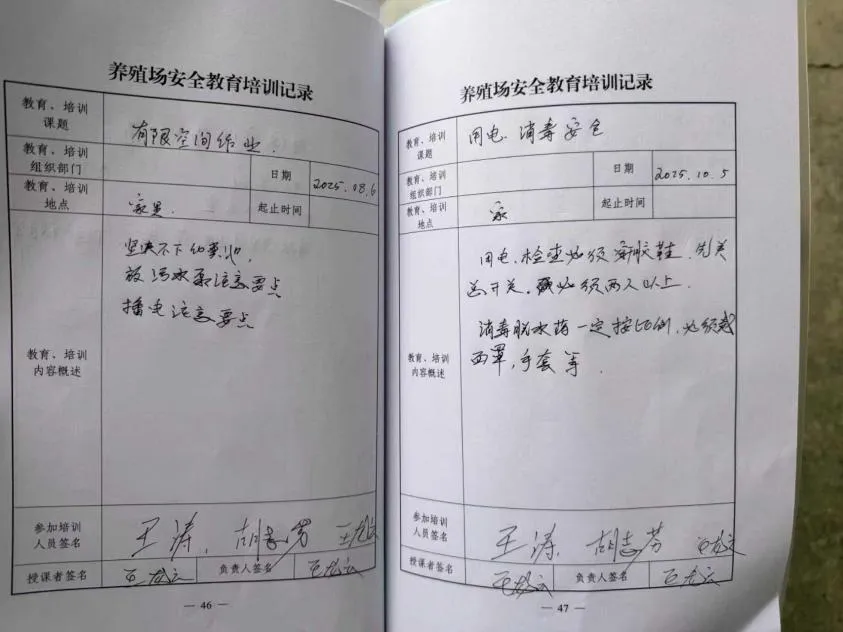 养殖场安全教育培训记录
教育、培训
课题
有限空间作业.
教育、培训
组织部门
日期
2025.08.6
教育、培训
地点
家里.
起止时间
教育、培训
内容概述
坚决不下
放污水泵注意要点
播电注意要点
参加培训
人员签名
王涛. 胡志芳
授课者签名
负责人签名
— 46 —
养殖场安全教育培训记录
教育、培训
课题
用电. 消毒安全
教育、培训
组织部门
日期
2025.10.5
教育、培训
地点
家
起止时间
教育、培训
内容概述
用电.检查必须穿胶鞋.先关
总开关.必须两人以上.
消毒 水药一定按比例.必须戴
口罩,手套等.
参加培训
人员签名
王涛. 胡志芳
授课者签名
负责人签名
— 47 —